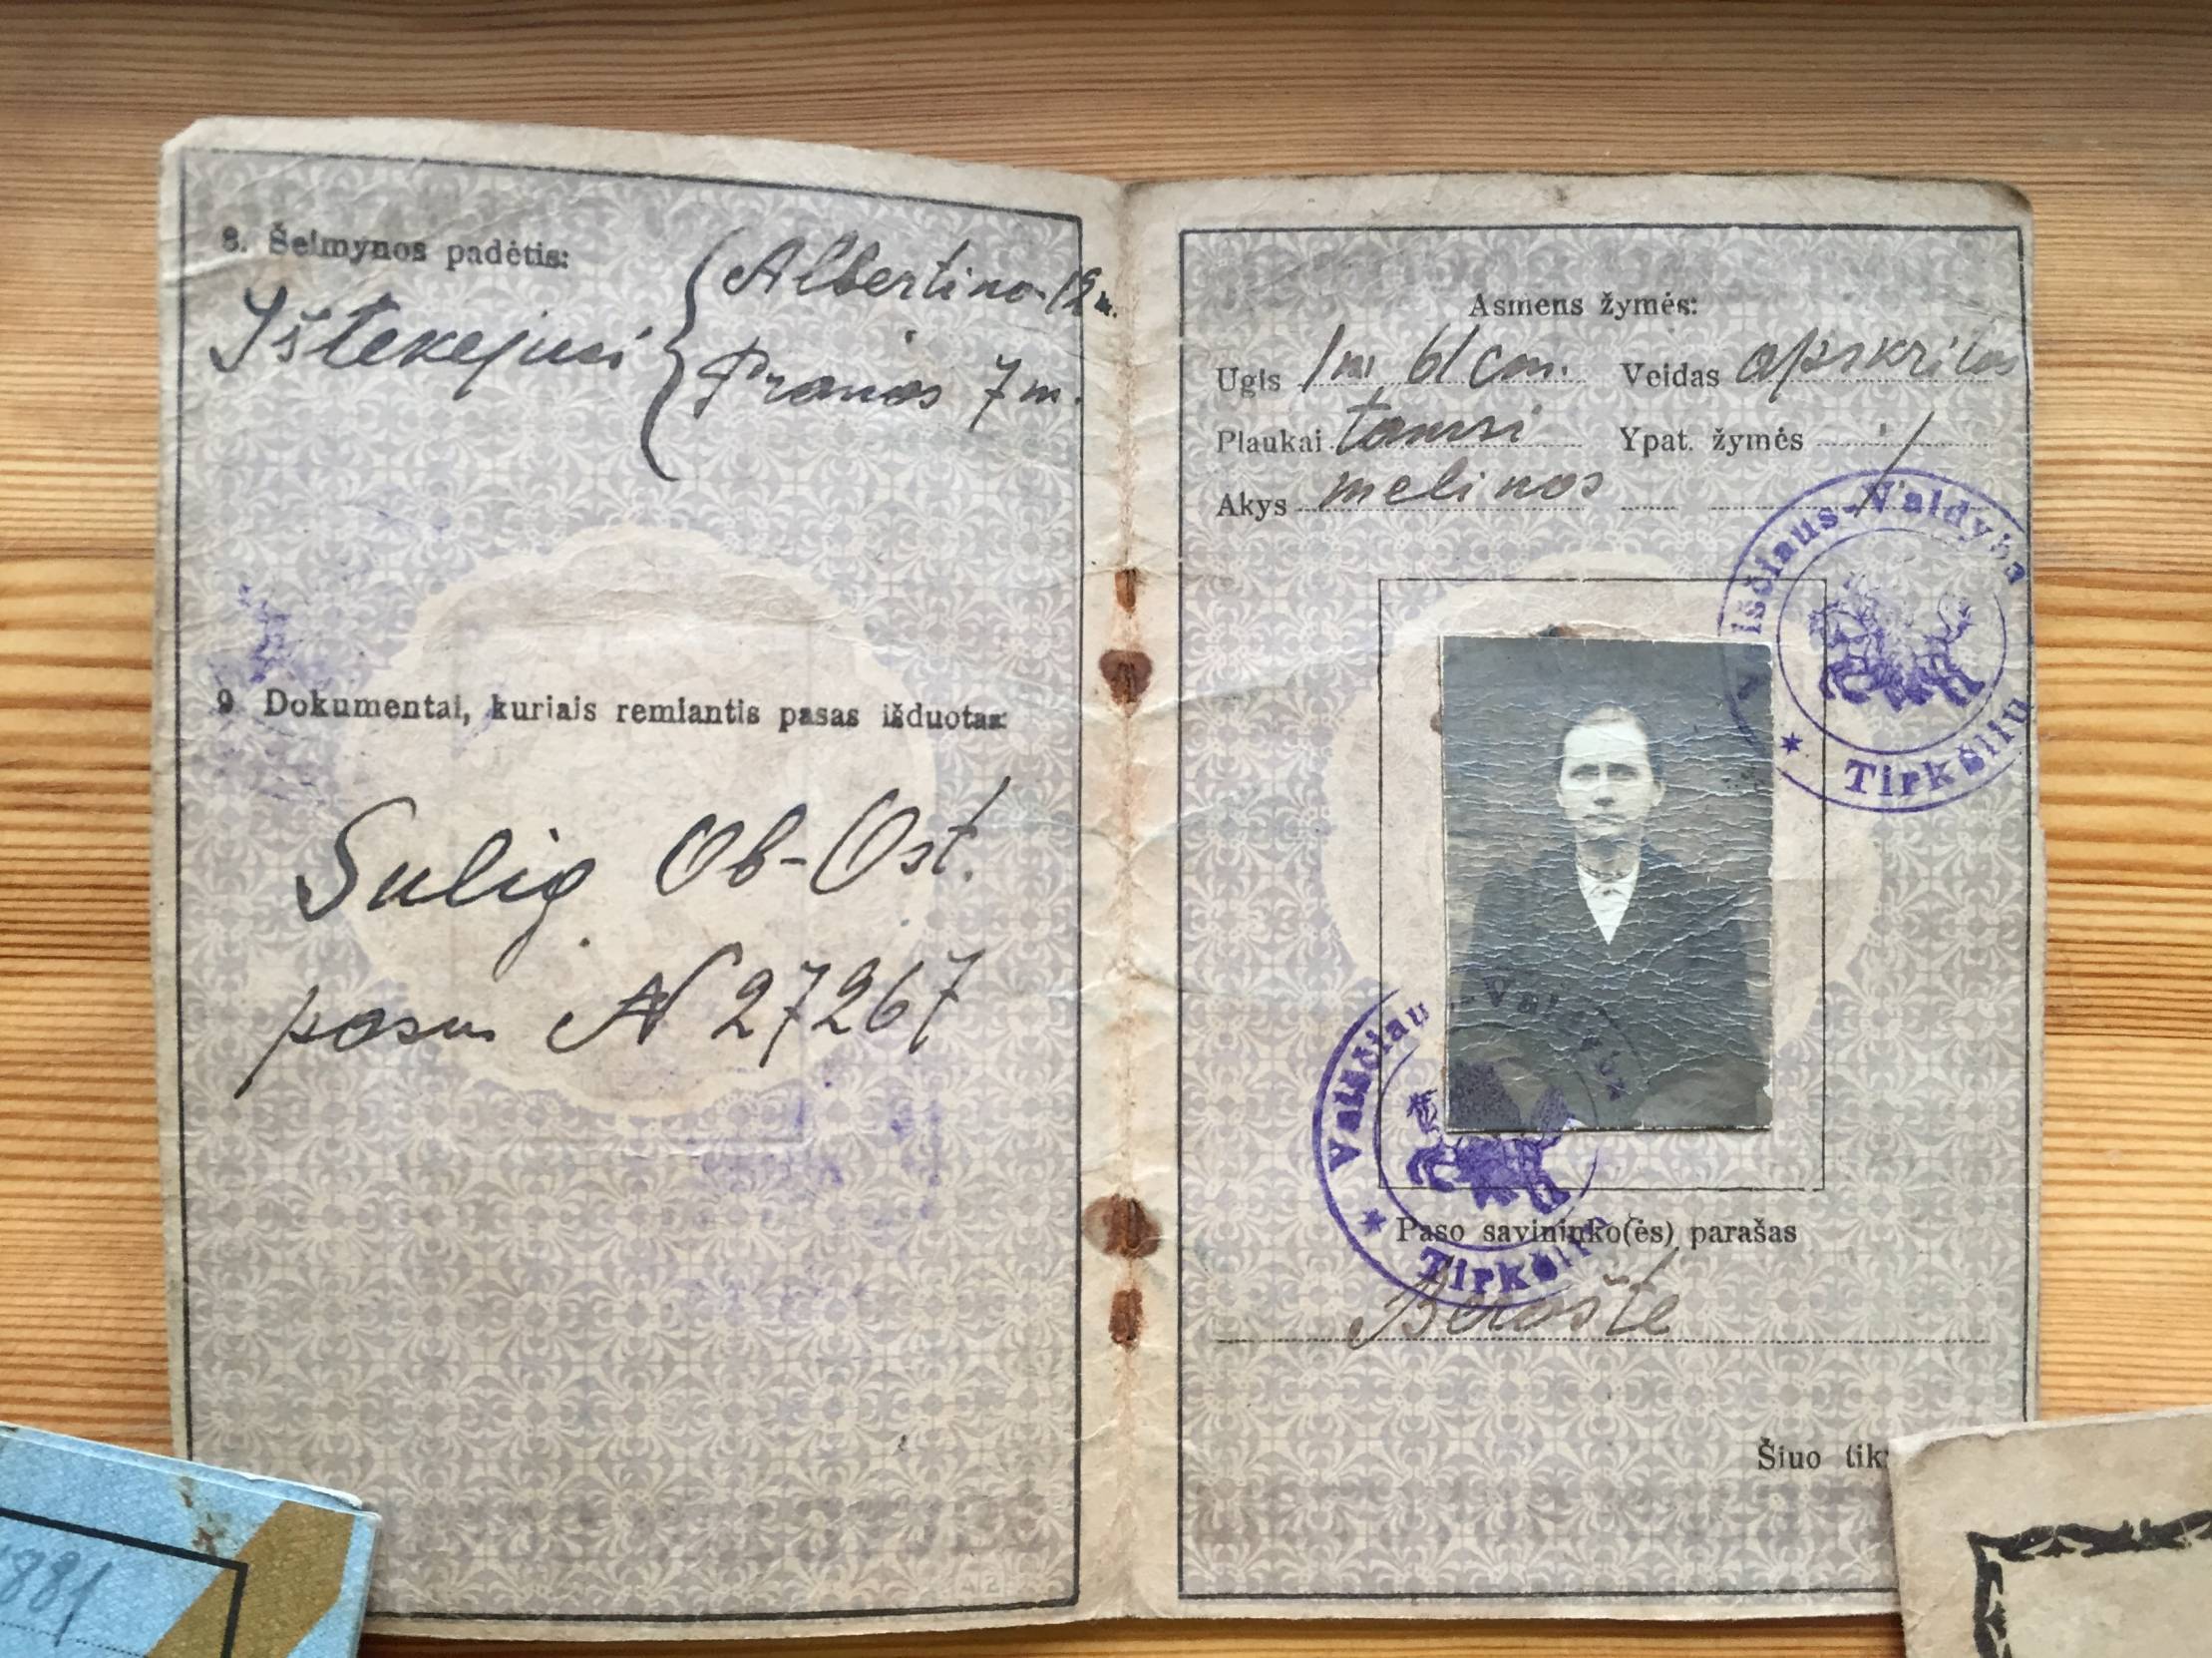 8. Šeimynos padėtis:
Ištekejusi { Albertina 12 m.
Pranas 7 m.
9 Dokumentai, kuriais remiantis pasas išduotas:
Sulig Ob-Ost.
paso N 27267
Asmens žymės:
Ugis 1 m 61 cm. Veidas apskritas
Plaukai tamsi Ypat. žymės /
Akys melinos
Valdyba
Tirkšlių
Valsčiaus-Val
Paso savininko(ės) parašas
Tirkšlių
Šiuo
881